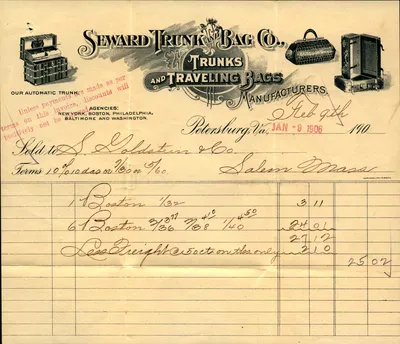 SEWARD TRUNK AND BAG CO.,
TRUNKS
AND TRAVELING BAGS.
MANUFACTURERS.
OUR AUTOMATIC TRUNK.
Unless payments are made as per
terms on this invoice, discounts will
positively not be
AGENCIES:
NEW YORK, BOSTON, PHILADELPHIA,
BALTIMORE AND WASHINGTON.
Feb 9th
Petersburg, Va. JAN -9 1906 190
Sold to S. Goldstein & Co.
Salem Mass
Terms 10%
1 Boston 1/32 3 11
6 Boston 2/36 2/38 1/40 24 01
27 12
Less Freight @ 50cts on this only 2 10
25 02